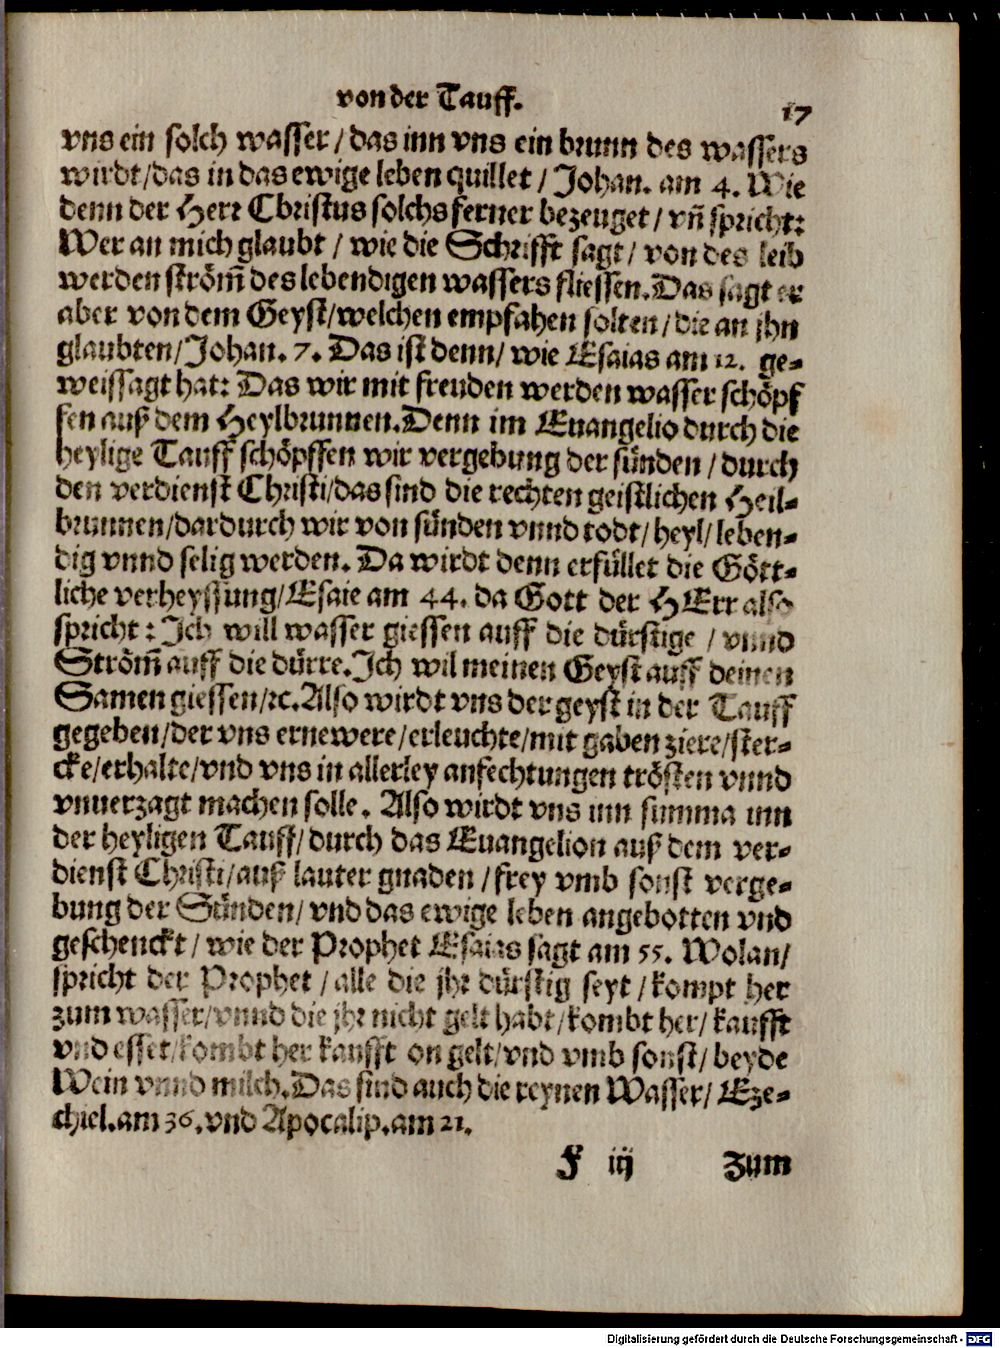 von der Tauff.
17
vns ein solch wasser / das inn vns ein brunn des wassers
wirdt/das in das ewige leben quillet / Johan. am 4. Wie
denn der Herr Christus solchs ferner bezeuget / vñ spricht:
Wer an mich glaubt / wie die Schrifft sagt / von des leib
werden ström̃ des lebendigen wassers fliessen. Das sagt er
aber von dem Geyst/welchen empfahen solten / die an jhn
glaubten/Johan. 7. Das ist denn/ wie Esaias am 12. ge-
weissagt hat: Das wir mit freuden werden wasser schöpf
fen auß dem Heylbrunnen. Denn im Euangelio durch die
heylige Tauff schöpffen wir vergebung der sünden / durch
den verdienst Christi/das sind die rechten geistlichen Heil-
brunnen/dardurch wir von sünden vnnd todt/ heyl/ leben-
dig vnnd selig werden. Da wirdt denn erfüllet die Gött-
liche verheyssung/Esaie am 44. da Gott der HErr also
spricht : Ich will wasser giessen auff die dürstige / vnnd
Ström̃ auff die dürre. Ich wil meinen Geyst auff deinen
Samen giessen/ꝛc. Also wirdt vns der geyst in der Tauff
gegeben/der vns ernewere/erleuchte/mit gaben ziere/ster-
cke/erhalte/vnd vns in allerley anfechtungen trösten vnnd
vnuerzagt machen solle. Also wirdt vns inn summa inn
der heyligen Tauff/ durch das Euangelion auß dem ver-
dienst Christi/auß lauter gnaden / frey vmb sonst verge-
bung der Sünden/ vnd das ewige leben angebotten vnd
geschenckt / wie der Prophet Esaias sagt am 55. Wolan/
spricht der Prophet / alle die jhr dürstig seyt / kompt her
zum wasser/vnnd die jhr nicht gelt habt/kombt her/ kaufft
vnd esset/kombt her kaufft on gelt/vnd vmb sonst/ beyde
Wein vnnd milch. Das sind auch die reynen Wasser/ Eze-
chiel. am 36. vnd Apocalip. am 21.
F iij
Zum
Digitalisierung gefördert durch die Deutsche Forschungsgemeinschaft - DFG